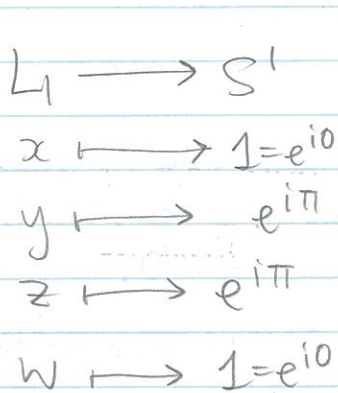 L₁ ⟶ S¹
x ⟼ 1=e^{i0}
y ⟼ e^{iπ}
z ⟼ e^{iπ}
w ⟼ 1=e^{i0}